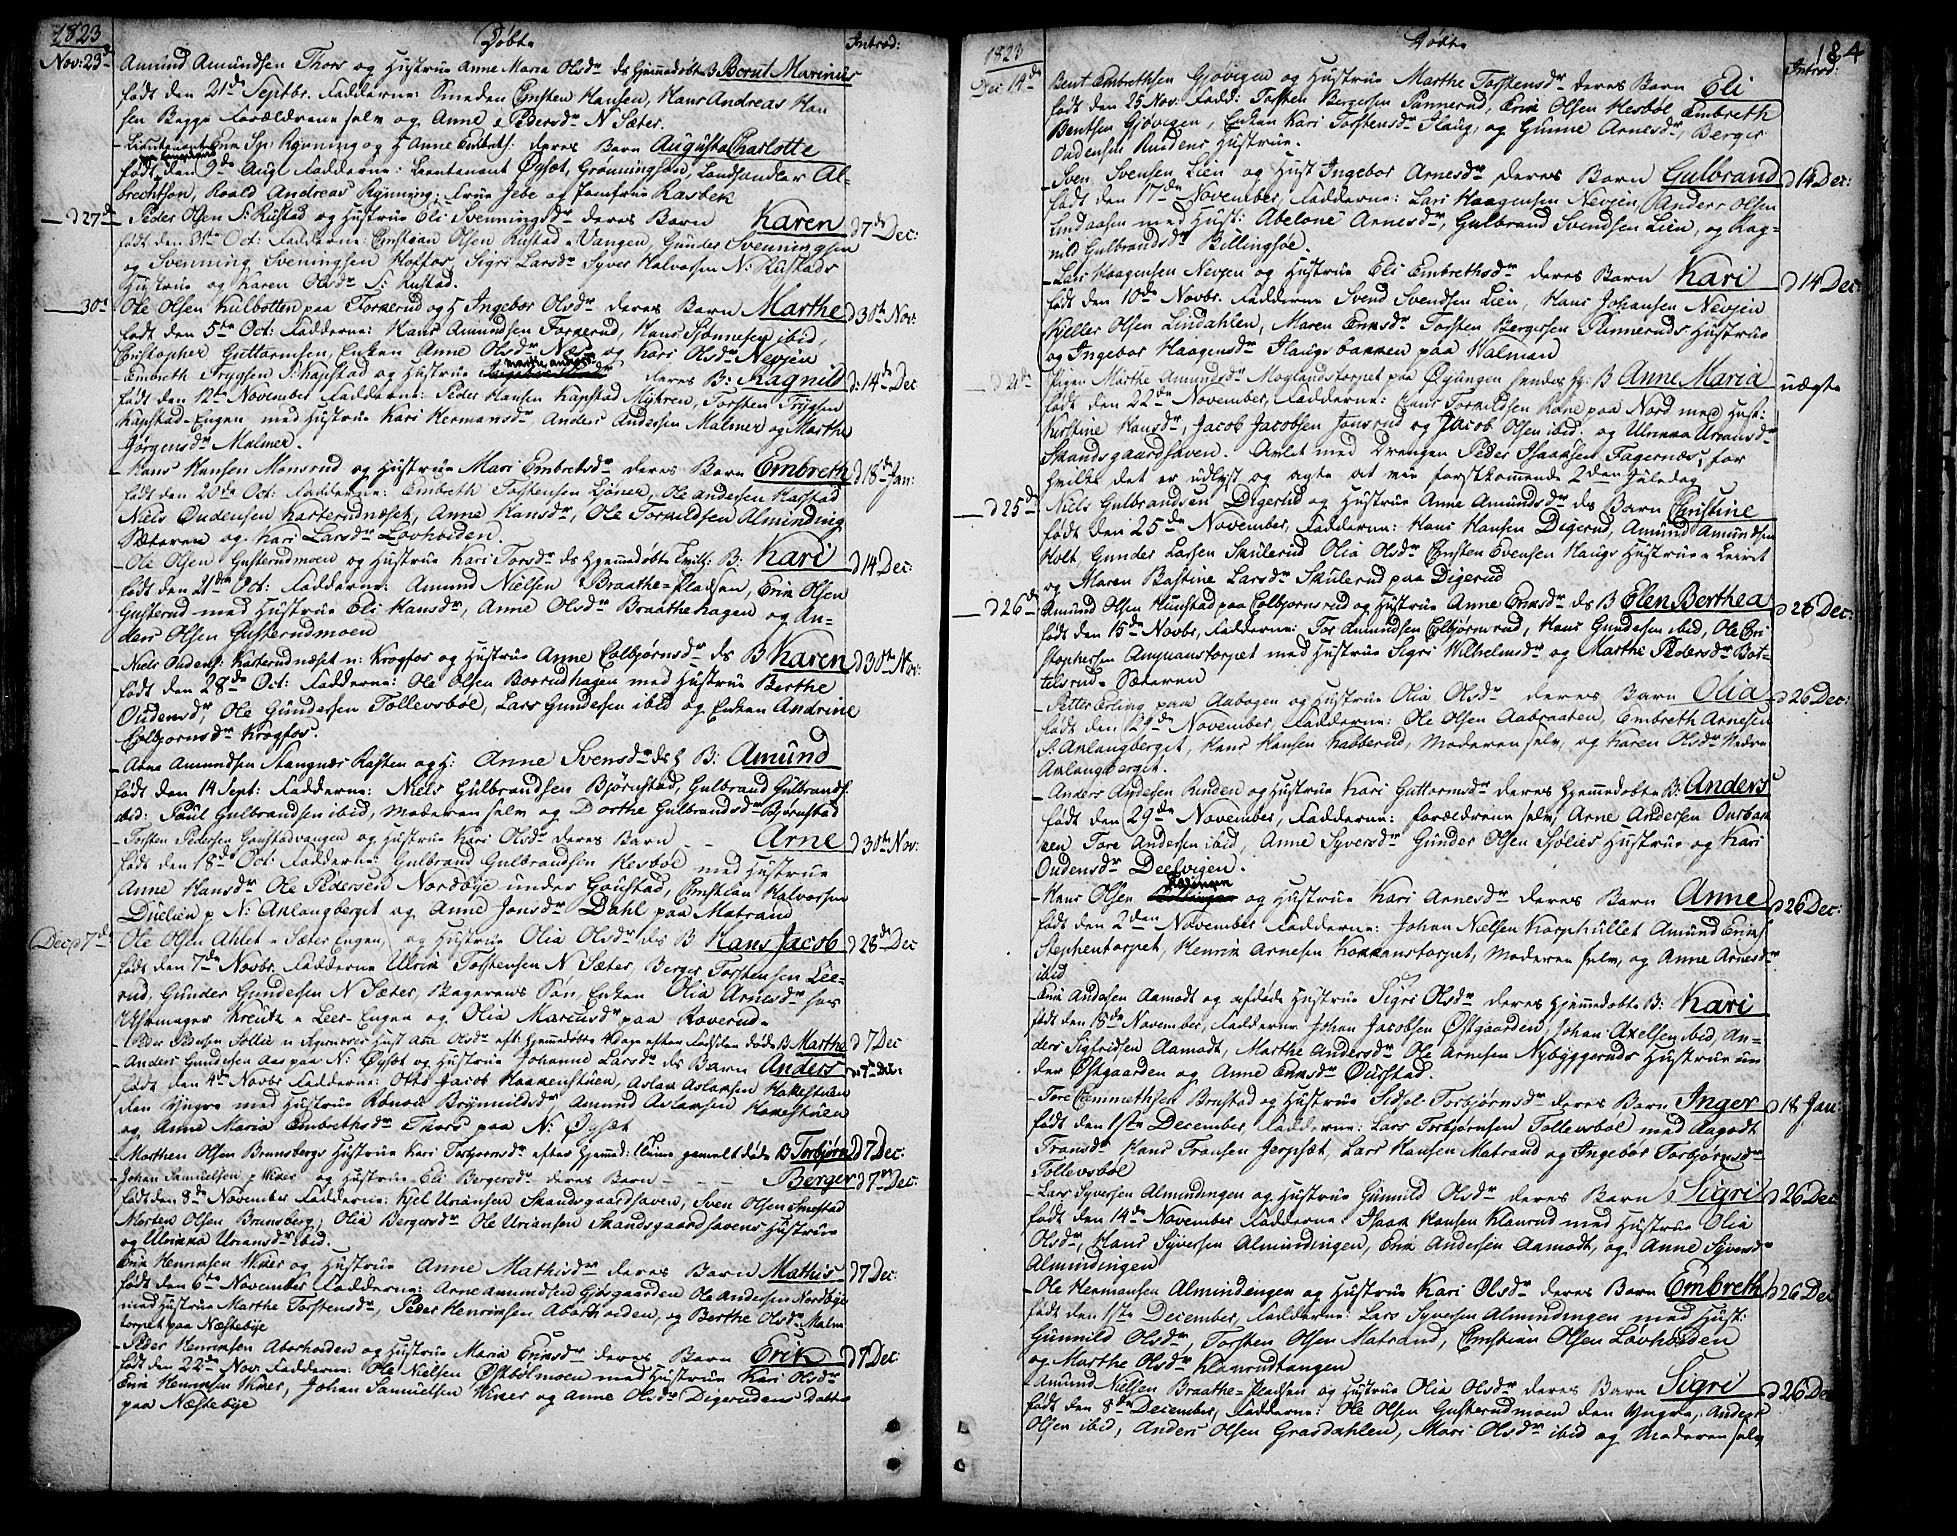 1823 Døbte Introd:
Nov: 23de Amund Amundsen Thors og Hustrue Anne Maria Olsdr ds Hjemmedøbte B Berut Marinus
født den 21de Septbr. Fadderne: Smeden Christen Hansen, Hans Andreas Han
sen Bagge Forældrene selv og Anne Pedersdr N Sæter.
Lieutenant deres Barn Augusta Charlotte
født den 9de Aug: Fadderne: Lieutenant Øysæt, Grønningsøn, Landhandler Al-
brechtson, Roald Andreas Rynning, Frue Jebe og Jomfrue Rasbek
d 27de Peder Olsen S: Rustad og Hustrue Eli Svenningsdr deres Barn Karen d 7de Dec:
født den 31te Oct: Fadderne: Christian Olsen Rustad Vangen, Gunder Svenningsen
og Svenning Svenningsen Koffos, Sigri Larsdr Syver Halvorsen N: Rustads
Hustrue og Karen Olsdr S: Rustad.
30te Ole Olsen Kulbotten paa Torkerud og H Ingebor Olsdr deres Barn Marthe d 30te Nov:
født den 5te Oct: Fadderne: Hans Amundsen Torkerud, Hans ibid,
Christopher Guttormsen, Enken Anne Olsdr og Kari Olsdr Nevsjen
Embreth Trygsen S: Kapstad og Hustrue Marthe deres B: Ragnild d: 14de Dec
født den 12te November Fadderne: Peder Hansen Kapstad Myhren, Torsten Trygsen
Kapstad-Engen med Hustrue Kari Hermansdr, Anders Andersen Malmer og Marthe
Jørgensdr Malmer.
Hans Hansen Monsrud og Hustrue Mari Embretsdr deres Barn Embreth d 18de Jan:
født den 20de Oct: Fadderne: Embreth Torstensen Tjøner, Ole Andersen Karstad
Niels Oudensen Karterudnæset, Anne Hansdr, Ole Torkildsen Alminding
Sæteren og Kari Larsdr Lovhoiden.
Ole Olsen Gusterudmoen og Hustrue Kari Torsdr ds Hjemmedøbte B: Kari d 14 Dec:
født den 21de Oct: Fadderne: Amund Nielsen Braathe-Pladsen, Erik Olsen
Gusterud med Hustrue Eli Hansdr, Anne Olsdr Braathehagen og An-
ders Olsen Gusterudmoen
Niels Oudens: Karterudnæset n: Krogfos og Hustrue Anne Colbjørnsdr ds B Karen d 30te Nov:
født den 28de Oct: Fadderne: Ole Olsen Borrudhagen med Hustrue Berthe
Oudensdr, Ole Gundersen Tollevsbøl, Lars Gundersen ibid og Enken Andrine
Colbjørnsdr Krogfos.
Arne Amundsen Stangnæs Rasten og H: Anne Svensdr ds B: Amund
født den 14 Sept: Fadderne: Niels Gulbrandsen Bjørnstad, Gulbrand Gulbrands:
ibid: Paul Gulbrandsen ibid, Moderen selv og Dorthe Gulbrandsdr Bjørnstad
Torsten Pedersen Goustadvangen og Hustrue Kari Olsdr deres Barn Arne d 30te Nov:
født den 18de Oct: Fadderne: Gulbrand Gulbrandsen Kesbøl med Hustrue
Anne Hansdr Ole Pedersen Nordbye under Goustad, Christian Halvorsen
Duelien p N: Anlangberget og Anne Jonsdr Dahl paa Matrand
Dec: 7de Ole Olsen Ahlet Sæter Engen, og Hustrue Olia Olsdr ds B Hans Jacob d 28de Dec
født den 7de Novbr. Fadderne Ulrik Torstensen N Sæter, Berger Torstensen Lee-
rud, Gunder Gundersen N Sæter, Bagerens Søn, Enken Olia Arnesdr hos
Uhrmager Kreutz Leer-Engen og Olia Marcusdr paa Roverud.
B Marthe d 7 Dec
Anders Gundersen Aas paa N: Øysæt og Hustrue Johanne Larsdr ds Barn Anders d 7de Dec:
født den 4de Novbr Fadderne: Otto Jacob Haakenstuen, Aslak Aslaksen Hakestuen
den Yngre med Hustrue Rønnou Brynnildsdr Amund Aslaksen Hakestuen
og Anne Maria Embrethsdr Thors paa N: Øysæt
Morthen Olsen Brunsbergs Hustrue Kari Torbjørnsdr efter Hjemmed: døde B Torbjørn d 7 Dec:
Johan Samuelsen Wiker og Hustrue Eli Bergersdr deres Barn Berger d 7de Dec:
født den 8de November Fadderne: Kjel Uriansen Skandsgaardhaven, Sven Olsen Smestad
Morten Olsen Brunsberg, Olia Bergersdr Ole Uriansen Skandsgaardhavens Hustrue
og Ulrikka Uriansdr ibid.
Erik Henriksen Wiker og Hustrue Anne Mathisdr deres Barn Mathis d 7 Dec:
født den 6te November Fadderne: Arne Amundsen Gjøsgaarden Ole Andersen Nordbye
med Hustrue Marthe Torstensdr, Peder Henriksen Aborhoiden, og Berthe Olsdr Malm
torpet paa Næstebye
Peder Henriksen Aborhoiden og Hustrue Maria Eriksdr deres Barn Erik d 7 Dec
født den 22de Nov: Fadderne: Ole Nielsen Østbølmoen med Hustrue Kari Olsdr
Erik Henriksen Wiker, Johan Samuelsen Wiker og Anne Olsdr Digerudens Datter
paa Næstebye
1823 Døbte 184 Introd:
Dec 14de Bent Embrethsen Gjøvigen og Hustrue Marthe Torstensdr deres Barn Eli
født den 25 Nov: Fadd: Torsten Bergersen Pannerud, Erik Olsen Kesbøl Embreth
Bentsen Gjøvigen, Enken Kari Torstensdr Haug, og Gunne Arnesdr, Berger
Oudensen Rundens Hustrue.
Sven Svensen Lien og Hust Ingebor Arnesdr deres Barn Gulbrand d 14 Dec:
født den 17de November, Fadderne: Lars Haagensen Nevsjen, Anders Olsen
Lindaasen med Hust: Abelone Arnesdr, Gulbrand Svendsen Lien, og Rag-
nild Gulbrandsdr Billingsøe.
Lars Haagensen Nevsjen og Hustrue Eli Embrethsdr deres Barn Kari d 14 Dec:
født den 10de Novbr. Fadderne Svend Svendsen Lien, Hans Johansen Nevsjen
Keller Olsen Lindahlen, Maren Eriksdr Torsten Bergersen Pannerud's Hustrue
og Ingebor Haagensdr Haugsbakken paa Walman
d 21de Pigen Marthe Amundsdr Moglandstorpet paa Øyungen hendes B Anne Maria uægte
født den 22de November, Fadderne: Hans Torkildsen paa Nord med Hust:
Kirstine Hansdr, Jacob Jacobsen Jonsrud og Jacob Olsen ibid. og Ulrikka Uriansdr
Skandsgaardhaven. Avlet med Drengen Peder Isaaksen Fagernæs, for
hvilke det er udlyst og agte at vies førstkommende 2den Juledag
d 25de Niels Gulbrandsen Digerud og Hustrue Anne Amundsdr ds Barn Christine
født den 25de November, Fadderne: Hans Hansen Digerud, Amund Amundsen
Holt, Gunder Larsen Skulerud Olia Olsdr Christen Evensen Haugs Hustrue Leiret
og Maren Bastine Larsdr Skulerud paa Digerud
d 26de Amund Olsen Kunstad paa Colbjørnsrud og Hustrue Anne Eriksdr ds B Elen Berthea d 26 Dec:
født den 15de Novbr, Fadderne: Tor Amundsen Colbjørnsrud, Hans Gundersen ibid, Ole Cri
stophersen med Hustrue Sigri Wilhelmsdr og Marthe Pedersdr Bot-
telsrud-Sæteren
Petter Erling paa Aabogen og Hustrue Olia Olsdr deres Barn Olia d 26 Dec:
født den 12de November, Fadderne: Ole Olsen Aabraaten, Embreth Arnesen
S: Anlangberget, Hans Hansen Kabberud, Moderen selv, og Karen Olsdr Nedre
Anlangberget.
Anders Andersen Runden og Hustrue Kari Guttormsdr deres Hjemmedøbte B: Anders
født den 29de November, Fadderne: Forældrene selv, Arne Andersen Ourbak
ken Tore Andersen ibid, Anne Syversdr Gunder Olsen Sjølies Hustrue og Kari
Oudensdr Deelvigen.
Hans Olsen og Hustrue Kari Arnesdr deres Barn Anne d 26 Dec:
født den 2den November Fadderne: Johan Nielsen Korphullet Amund Eriks:
Stephentorpet, Henrik Arnesen Kokkanstorpet, Moderen selv, og Anne Arnesdr
ibid
Erik Andersen Aamodt og afdøde Hustrue Sigri Olsdr deres Hjemmedøbte B: Kari
født den 18de November, Fadderne Johan Jacobsen Østgaarden, Johan Axelsen ibid, An-
ders Sigfridsen Aamodt, Marthe Andersdr Ole Arnesen Nybyggerruds Hustrue un
der Østgaarden og Anne Eriksdr Ourstad.
Tore Embrethsen Brustad og Hustrue Sidsel Torbjørnsdr deres Barn Inger d 18 Jan:
født den 1ste December, Fadderne: Lars Torbjørnsen Tollevsbøl med Aagodt
Fransdr Hans Fransen Jerpsæt, Lars Hansen Matrand og Ingebor Torbjørnsdr
Tollevsbøl
Lars Syversen Almindingen og Hustrue Gunnild Olsdr deres Barn Sigri d 26 Dec
født den 14de November Fadderne: Isaak Hansen Klanrud med Hustrue Olia
Olsdr, Hans Syversen Almindingen, Erik Andersen Aamodt, og Anne Syversdr
Almindingen
Ole Hermansen Almindingen og Hustrue Kari Olsdr deres Barn Embreth d 26 Dec
født den 1ste December, Fadderne: Lars Syversen Almindingen med Hust:
Gunnild Olsdr, Torsten Olsen Matrand, Christian Olsen Lovhoiden
og Marthe Olsdr Klanrudtangen
Amund Nielsen Braathe-Pladsen og Hustrue Olia Olsdr deres Barn Sigri d 26 De
født den 8de December, Fadderne: Ole Olsen Gusterudmoen den Yngre, Anders
Olsen ibid, Anders Olsen Grasdahlen, Mari Olsdr ibid og Moderen selv